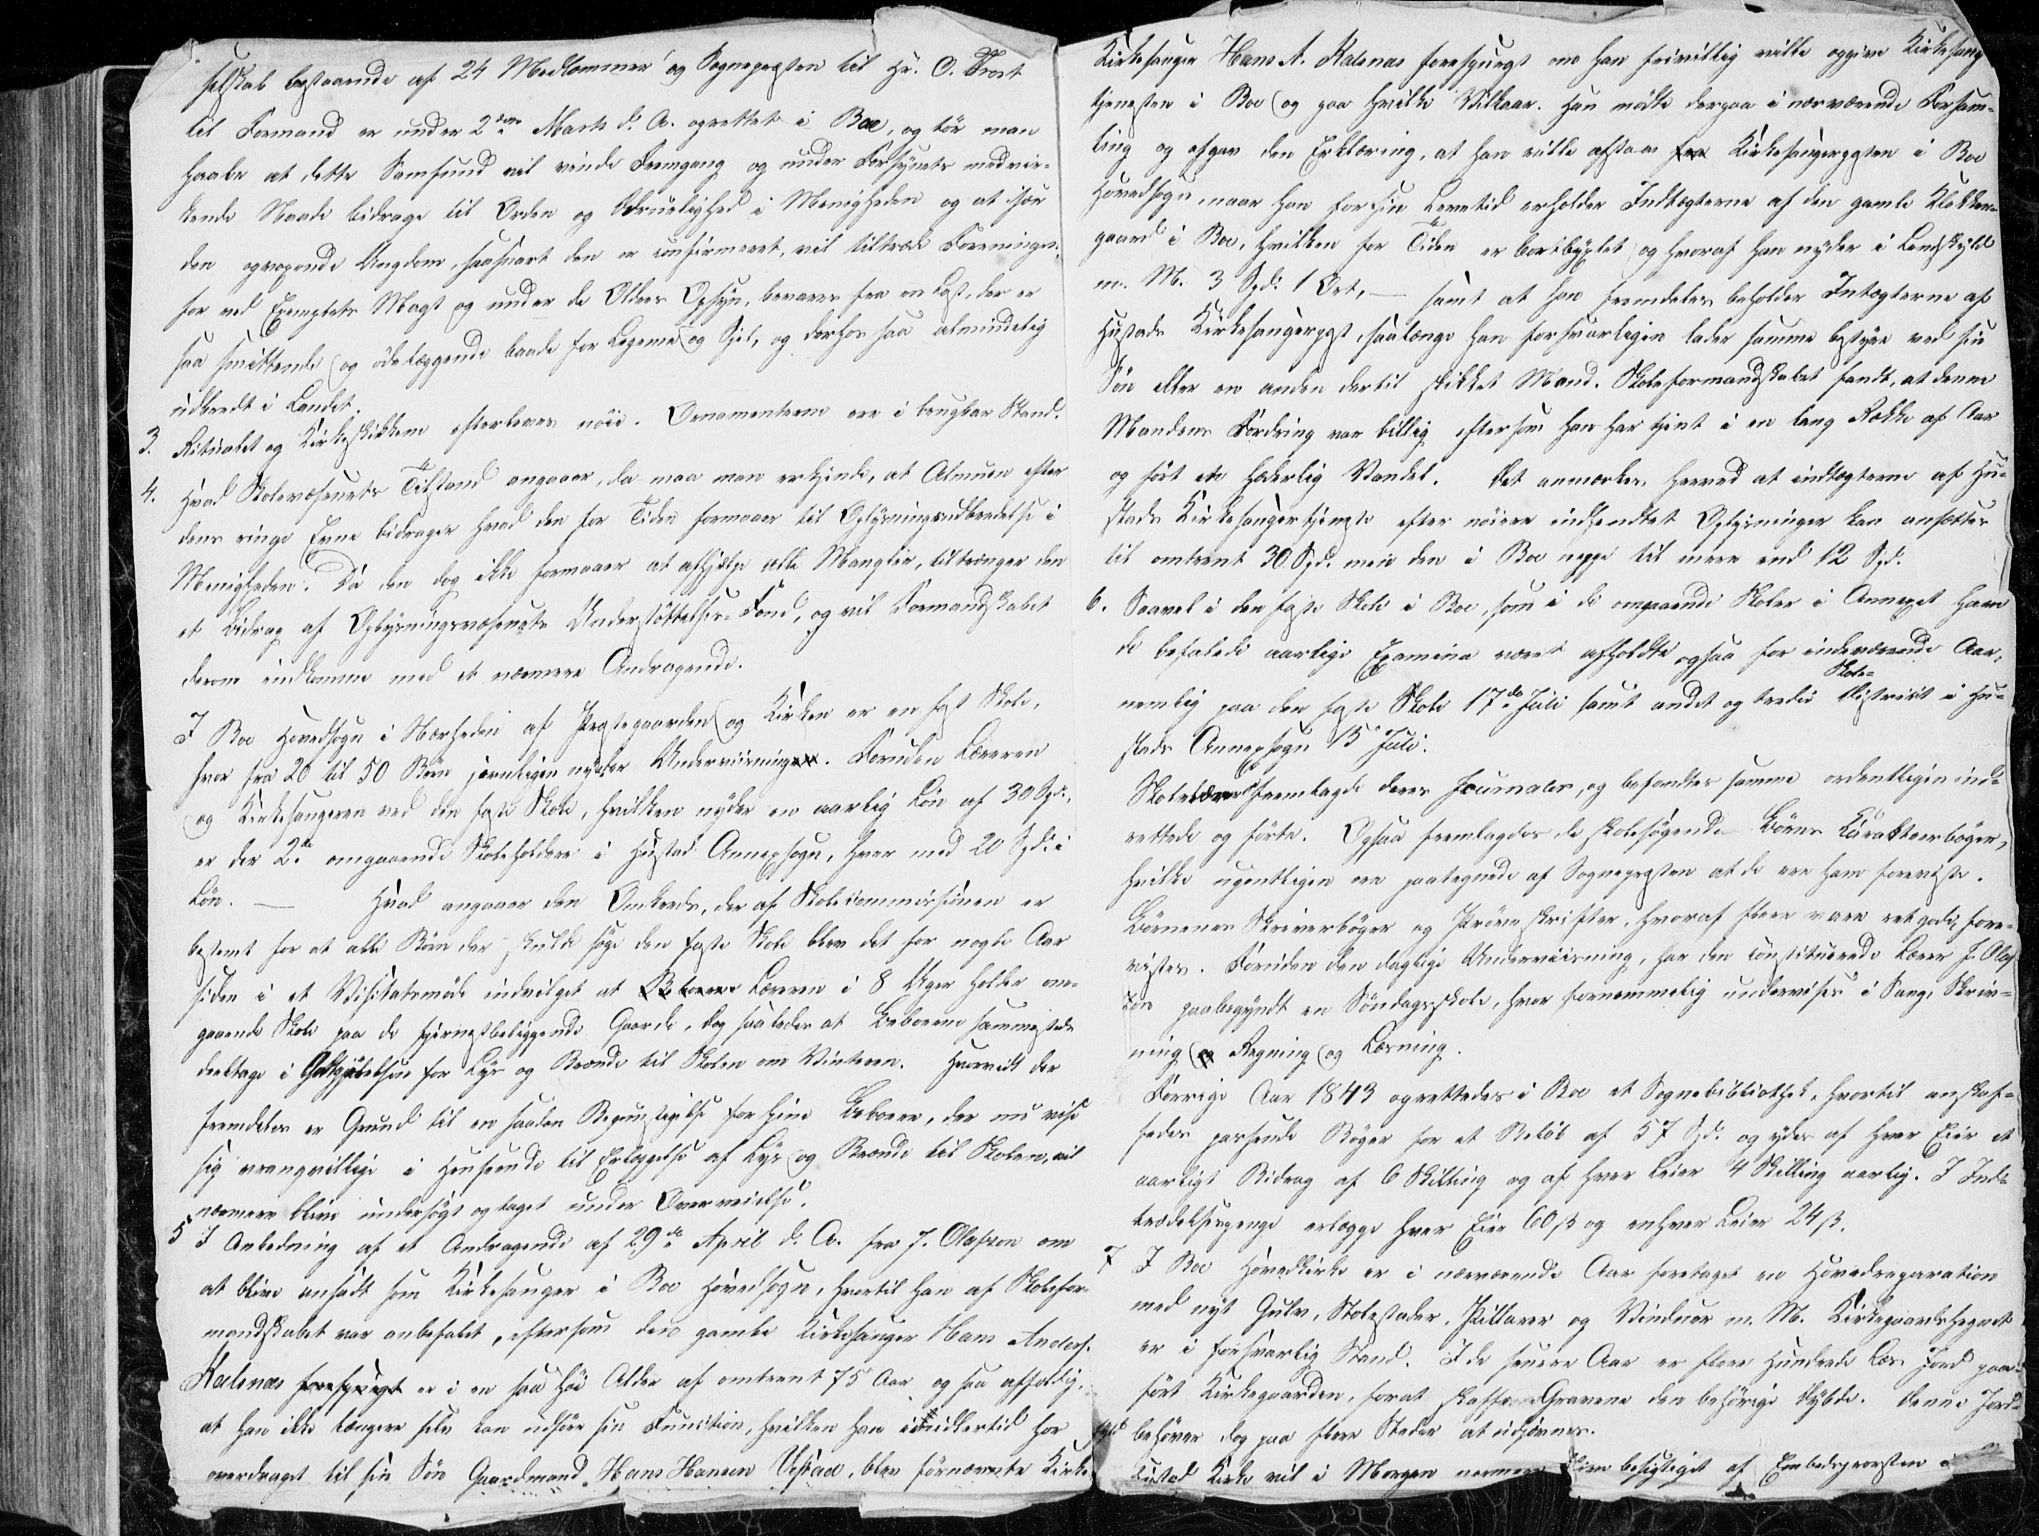 selskab bestaaende af 24 Medlemmer og Sognepræsten til Hr. O.
til Formand er under 2den Marts d. A. oprettet i Boe, og tör man
haabe at dette Samfund vil vinde Fremgang og under Forsynets medvir-
kende Naade bidrage til Orden og Ædruelighed i Menigheden og at især
den opvoxende Ungdom, saasnart den er confirmeret, vil tiltræde Foreningen,
for ved Exemplets Magt og under de Ældres Opsyn, bevares fra en Last, der er
saa smittende og ödelæggende baade for Legeme og Sjel, og derhos saa almindelig
udbredt i Landet.
3. Ritualet og Kirkeskikkene efterleves nöie. Ornamenterne ere i brugbar Stand.
4. Hvad Skolevæsenets Tilstand angaaer, da maa man erkjende, at Almuen efter
dens ringe Evne bidrager hvad den for Tiden formaaer til Oplysningsudbredelse i
Menigheden. Da den dog ikke formaaer at afhjælpe alle Mangler, tiltrænger den
et Bidrag af Oplysningsvæsenets Understöttelses-Fond, og vil Formandskabet
derom indkomme med et nærmere Andragende.
I Boe Hovedsogn i Nærheden af Præstegaarden og Kirken er en fast Skole,
hvor fra 20 til 50 Börn jevnligen nyder Underviisning. Foruden Læreren
og Kirkesangeren ved den faste Skole, hvilken nyder en aarlig Lön af 30 Spd.,
er der 2de omgaaende Skoleholdere i Hustad Annexsogn, hver med 20 Spd. i
Lön. — Hvad angaaer den Omkreds, der af Skolecommissionen er
bestemt for at alle Börn der skulde söge den faste Skole blev det for nogle Aar
siden i et Visitatsmöde indvilget at Læreren i 8 Uger holder om-
gaaende Skole paa de fjernestbeliggende Gaarde, dog saaledes at Beboerne sammesteds
deeltage i Godtgjörelsen for Lys og Brænde til Skolen om Vinteren. Hvorvidt der
fremdeles er Grund til en saadan Begunstigelse for hine Beboere, der nu vise
sig vrangvillige i Henseende til Erlæggelse af Lys og Brænde til Skolen, vil
nærmere blive undersögt og taget under Overveielse.
5 I Anledning af et Andragende af 29de April d. A. fra J. Olafson om
at blive ansadt som Kirkesanger i Boe Hovedsogn, hvortil han af Skolefor-
mandskabet var anbefalet, eftersom den gamle Kirkesanger Hans Anders.
Kalsnæs forespurgt er i en saa höi Alder af omtrent 75 Aar og saa affældig,
at han ikke længere selv kan udföre sin Function, hvilken han imidlertid har
overdraget til sin Sön Gaardmand Hans Hansen Vestad, blev förnævnte Kirke-
Kirkesanger Hans A. Kalsnæs forespurgt om han frivillig vilde opgive Kirkesang
tjenesten i Boe og paa hvilke Vilkaar. Han mödte derpaa i nærværende Forsam-
ling og afgav den Erklæring, at han vilde afstaae fra Kirkesangerposten i Boe
Hovedsogn, naar han for sin Levetid erholder Indtægterne af den gamle Klokker-
gaard i Boe, hvilken for Tiden er bortbyxlet og hvoraf han nyder i Landskyld
m. M. 3 Spd. 1 Ort, — samt at han fremdeles beholder Intægterne af
Hustads Kirkesangerpost, saalænge han forsvarligen lader samme bestyre ved sin
Sön eller en anden dertil skikket Mand. Skoleformandskabet fandt, at denne
Mandens Fordring var billig eftersom han har tjent i en lang Række af Aar
og fört en hæderlig Vandel. Det anmærkes herved at indtægterne af Hu-
stads Kirkesangertjeneste efter nöiere indhendtet Oplysninger kan ansættes
til omtrent 30 Spd. men den i Boe neppe til mere end 12 Spd.
6. Saavel i den faste Skole i Boe, som i de omgaaende Skoler i Annexet have
de befalede aarlige Examina været afholdte ogsaa for indeværende Aar,
nemlig paa den faste Skole 17de Juli samt andet og tredie Skole-District i Hu-
stads Annexsogn 15 Juli.
Skolelærerne fremlagde deres Journaler, og befandtes samme ordentligen ind-
rettede og förte. Ogsaa fremlagdes de skolesögende Börns Karakteerböger,
hvilke ugentligen ere paategnede af Sognepræsten at de ere ham foreviste.
Börnenes Skriveböger og Pröveskrifter, hvoraf flere vare ret gode, fore-
vistes. Foruden den daglige Underviisning, har den constituerede Lærer J. Olaf
sön paabegyndt en Söndagsskole, hvor fornemmelig undervises i Sang, Skriv-
ning og Regning og Læsning.
Forrige Aar 1843 oprettedes i Boe et Sognebibliothek, hvortil anskaf-
fedes passende Böger for et Belöb af 57 Spd. og ydes af hver Eier et
aarligt Bidrag af 6 Skilling og af hver Leier 4 Skilling aarlig. I Ind-
trædelsespenge erlægge hver Eier 60 ß og enhver Leier 24 ß.
7 I Boe Hovedkirke er i nærværende Aar foretaget en Hovedreparation
med nyt Gulv, Stolestader, Pillarer og Vinduer m. M. Kirkegaardshegnet
er i forsvarlig Stand. I de senere Aar er flere Hundrede Læs Jord paa-
fört Kirkegaarden, forat skaffe Gravene den behörige Dybde. Denne Jord-
fyld behöver dog paa flere Steder at udjævnes.
Hustad Kirke vil i Morgen nærmere blive besigtiget af Embedsprovsten i